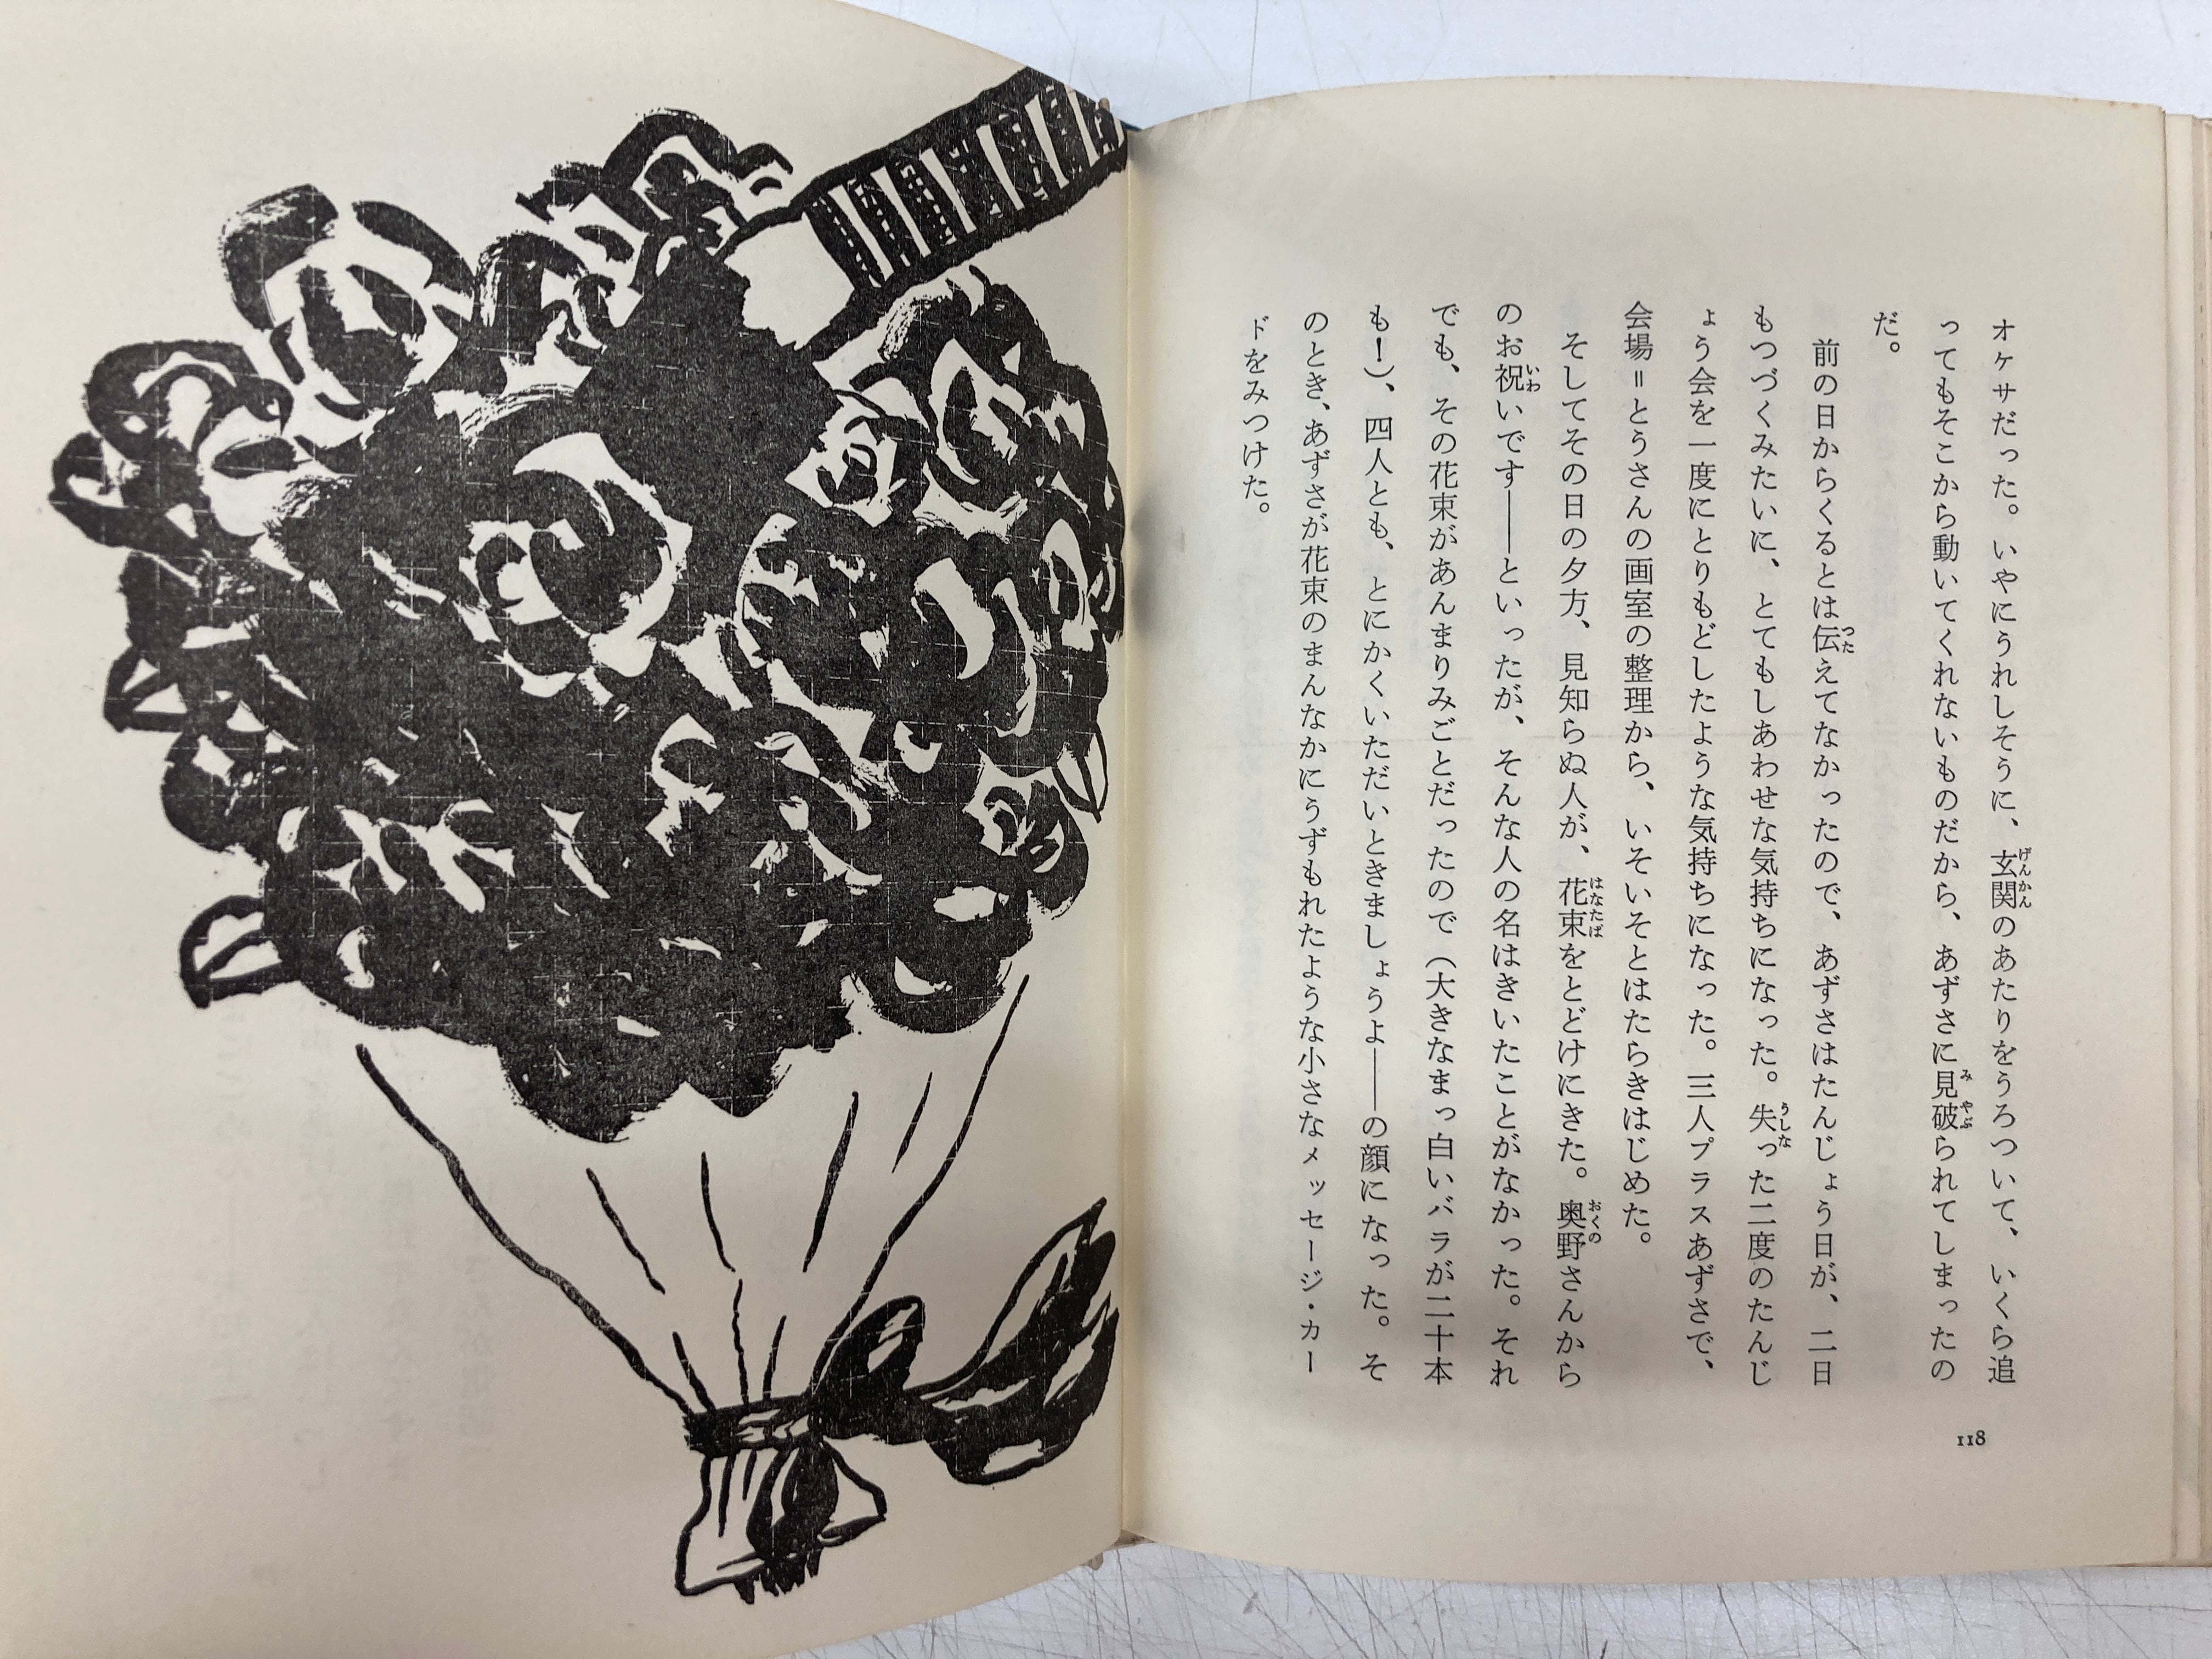 オケサだった。いやにうれしそうに、玄関のあたりをうろついて、いくら追
ってもそこから動いてくれないものだから、あずさに見破られてしまったの
だ。
前の日からくるとは伝えてなかったので、あずさはたんじょう日が、二日
もつづくみたいに、とてもしあわせな気持ちになった。失った二度のたんじ
ょう会を一度にとりもどしたような気持ちになった。三人プラスあずさで、
会場＝とうさんの画室の整理から、いそいそとはたらきはじめた。
そしてその日の夕方、見知らぬ人が、花束をとどけにきた。奥野さんから
のお祝いです――といったが、そんな人の名はきいたことがなかった。それ
でも、その花束があんまりみごとだったので（大きなまっ白いバラが二十本
も！）、四人とも、とにかくいただいときましょうよ――の顔になった。そ
のとき、あずさが花束のまんなかにうずもれたような小さなメッセージ・カー
ドをみつけた。
118